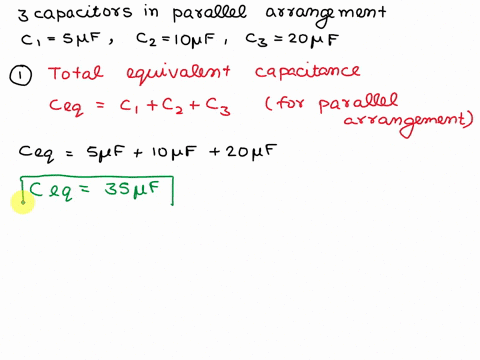 3 capacitors in parallel arrangement
C1 = 5μF, C2 = 10μF, C3 = 20μF
① Total equivalent capacitance
Ceq = C1 + C2 + C3 (for parallel
arrangement)
Ceq = 5μF + 10μF + 20μF
Ceq = 35μF